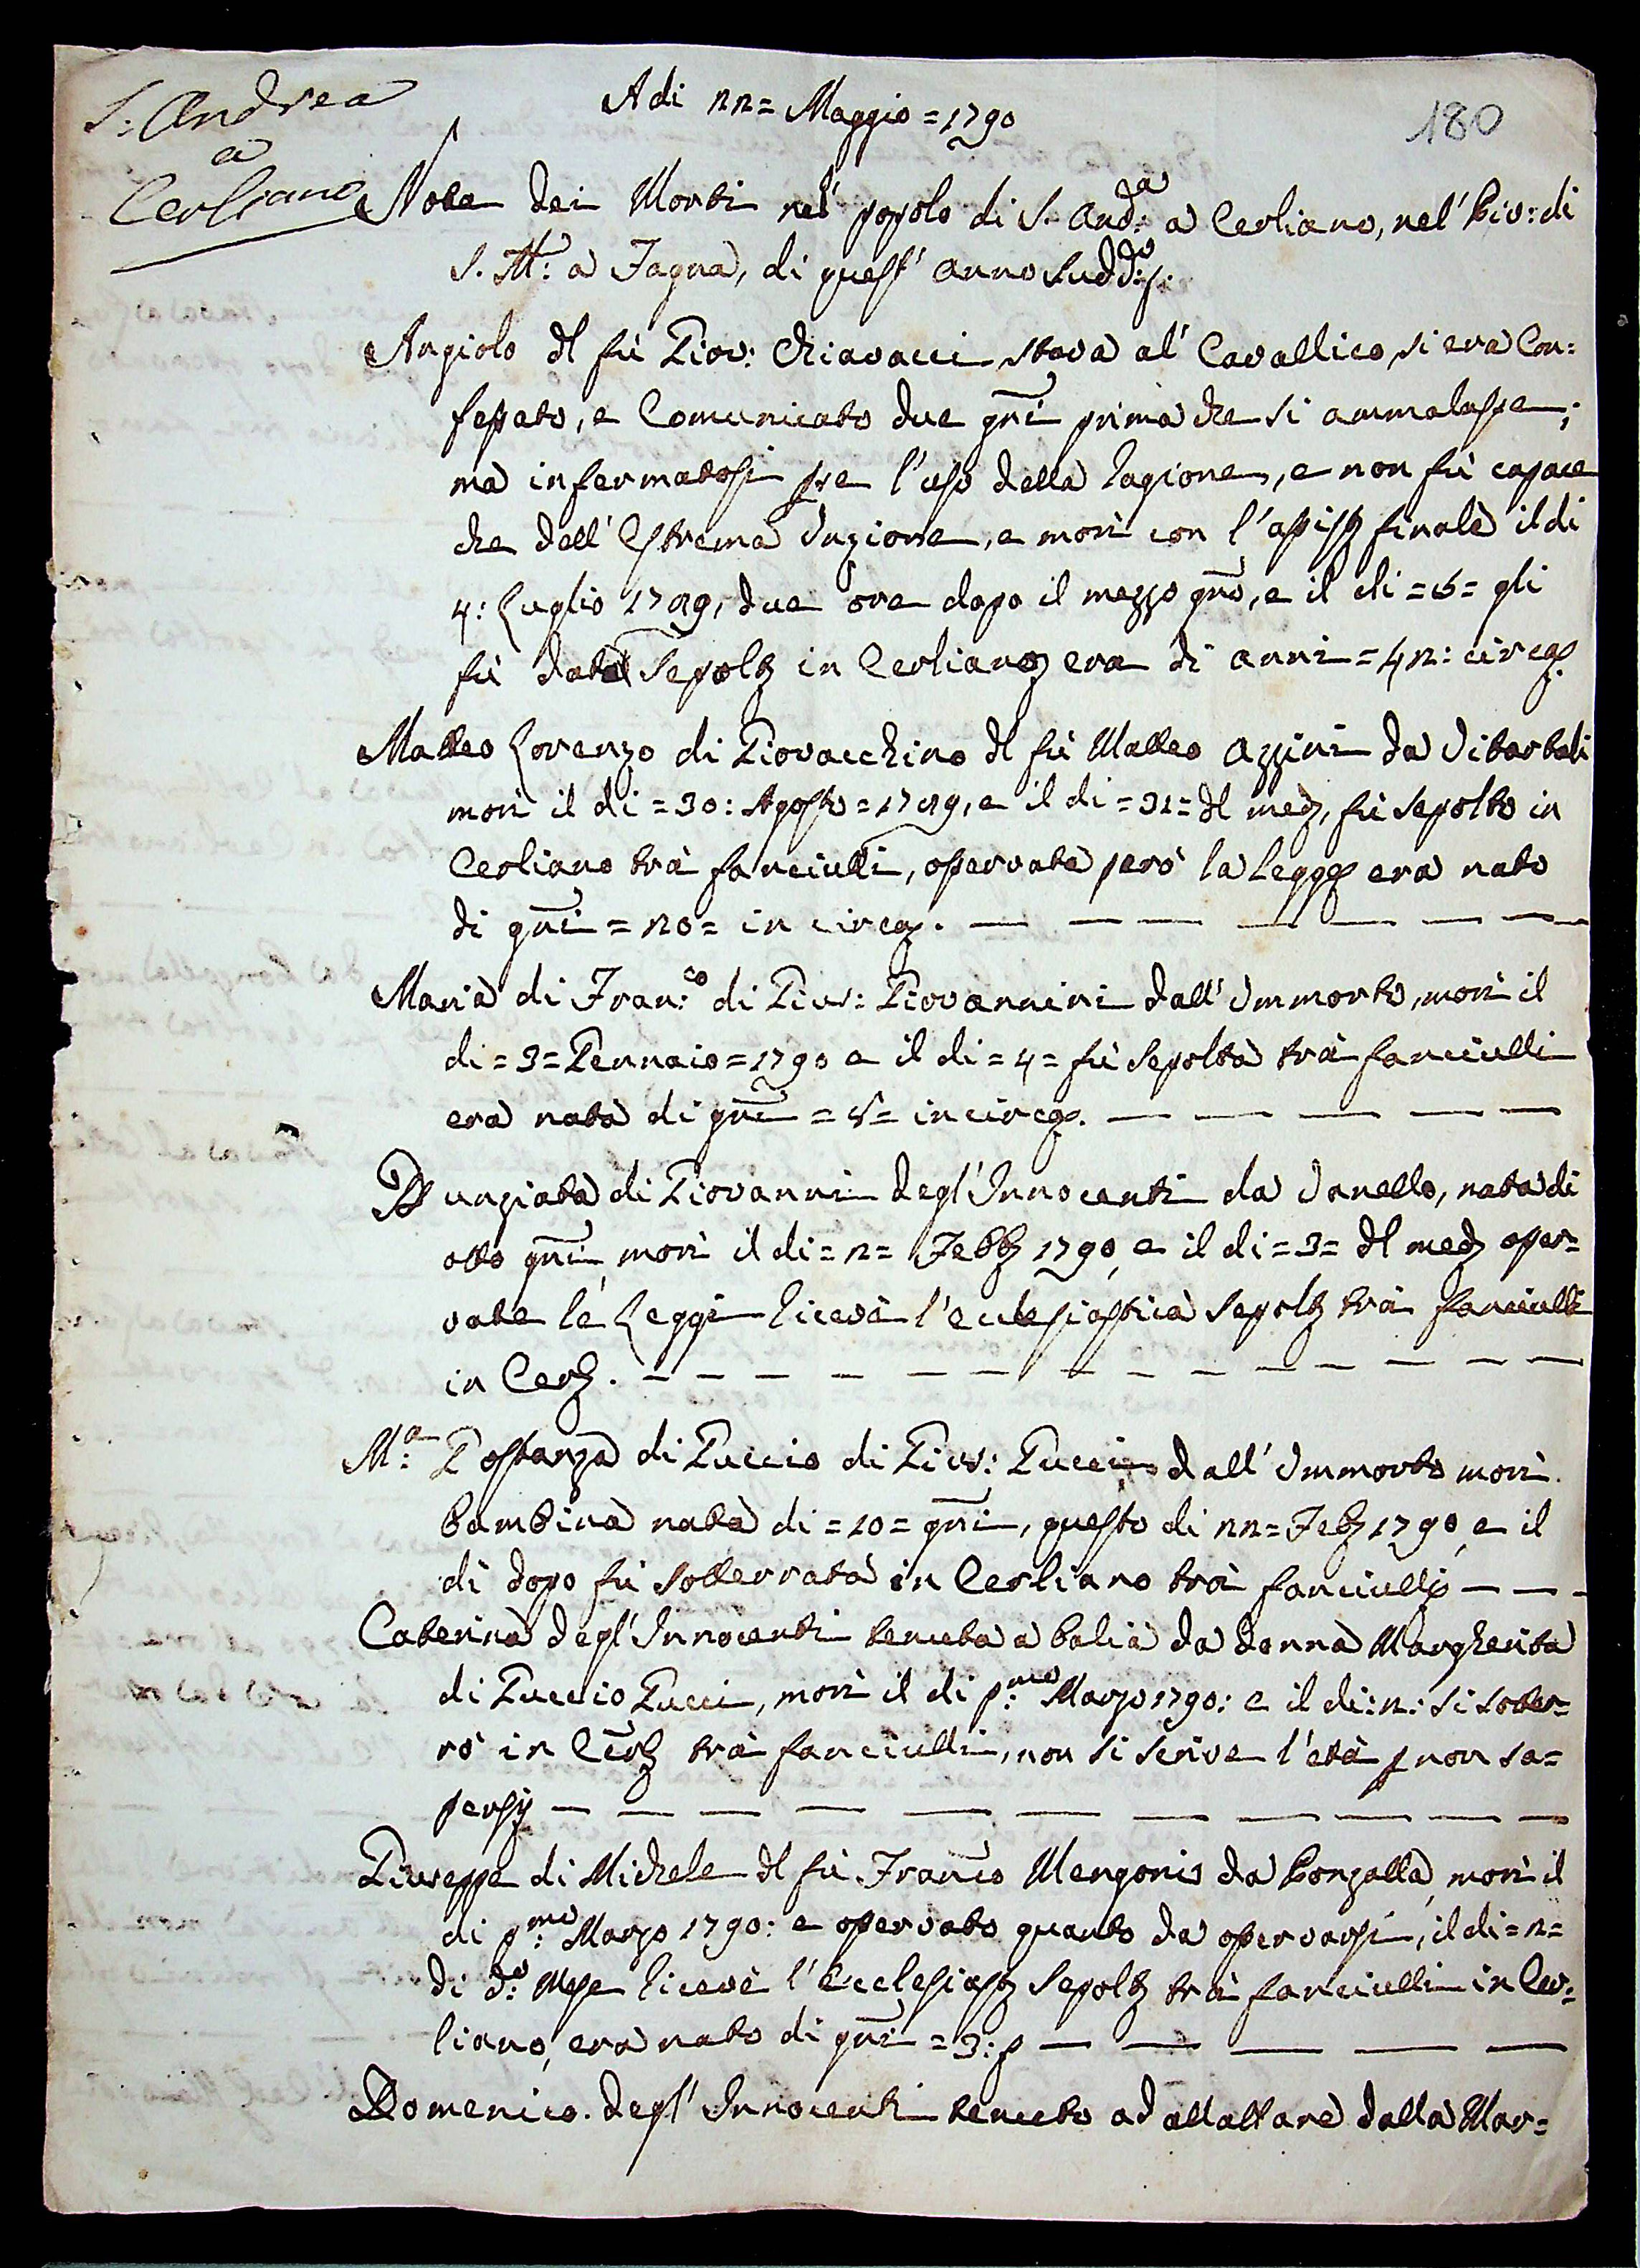 S: Andrea
a
Cerliano
180
A di 22= Maggio = 1790
Nota dei Morti nel' popolo di S. And:a a Cerliano, nel' Piv: di
S. M: a Fagna, di quest' anno sudd:o
Angiolo dl fù Giov: Chiavacci stava al' Cavallico, si era Con=
fessato, e Comunicato due gni prima che si ammalasse;
ma infermatosi pse l'uso della ragione, e non fù capace
che dell' Estrema Unzione, e morì con l'assis finale il di
4: Luglio 1789, due ore dopo il mezzo gno, e il di =6= gli
fù data Sepolt in Cerliano era di anni = 42: circa
Matteo Lorenzo di Giovacchino dl fù Matteo Azzini da Vitartali
morì il di =30: Agosto = 1789, e il di =31= dl med, fù sepolto in
Cerliano trà fanciulli, osservata però la legge era nato
di gni = 20= in circa.
Maria di Fran:co di Giov: Giovannini dall' Ummorto, morì il
di =3= Gennaio = 1790 e il di =4= fù Sepolta trà fanciulli
era nata di gni = 5= in circa.
Nunziata di Giovanni degl' Innocenti da Vanello, nata di
otto gni, morì il di =2= Febb 1790, e il di =3= dl med osser=
vate le Leggi ricevè l'eclesiastica sepolt trà fanciulli
in Cerl.
M:a Gostanza di Puccio di Giov: Pucci dall' Ummorto morì
bambina nata di =10= gni, questo di 22= Feb 1790, e il
di dopo fù sotterrata in Cerliano trà fanciulli
Caterina degl' Innocenti tenuta a balia da donna Margherita
di Puccio Pucci, morì il di p:mo Marzo 1790: e il di:2: si sotter=
rò in Cerl trà fanciulli, non si scrive l'età p non sa=
persi
Giuseppe di Michele dl fù Franco Mengoni da Ponzalla, morì il
di p:mo Marzo 1790: e osservato quanto da osservarsi, il di =2=
di d:o Mese ricevè l'Ecclesiast Sepolt trà fanciulli in Cer=
liano, era nato di gni =3:
Domenico degl' Innocenti tenuto ad allattare dalla Mar=